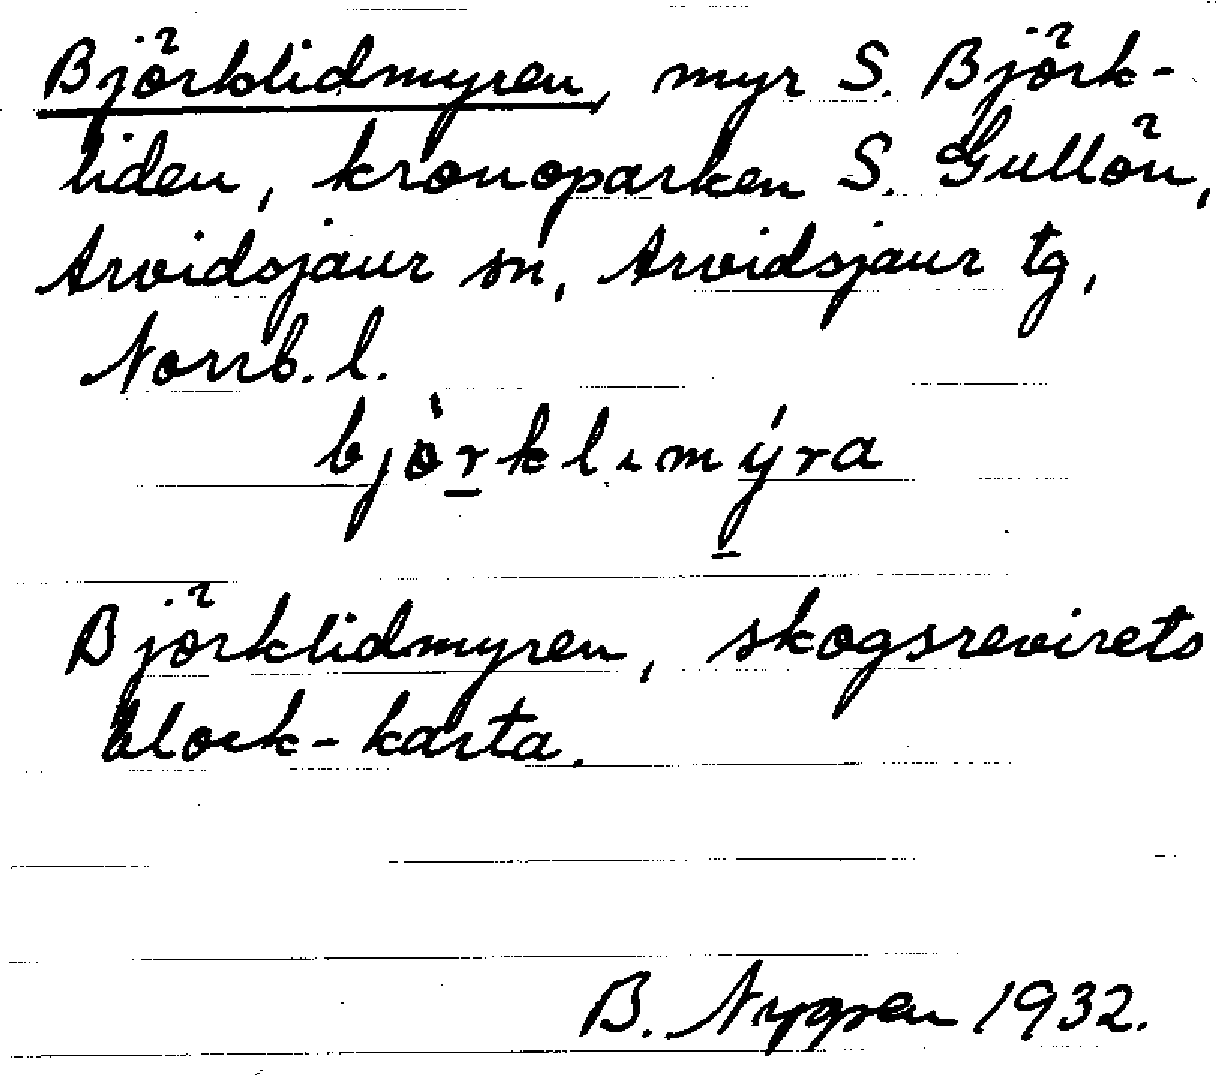 Björklidmyren, myr S. Björk-
liden, kronoparken S. Gullön,
Arvidsjaur sn, Arvidsjaur tg,
Norrb. l.
bjò̈rklımýra
Björklidmyren, skogsrevirets
block-karta.
B. Nygren 1932.